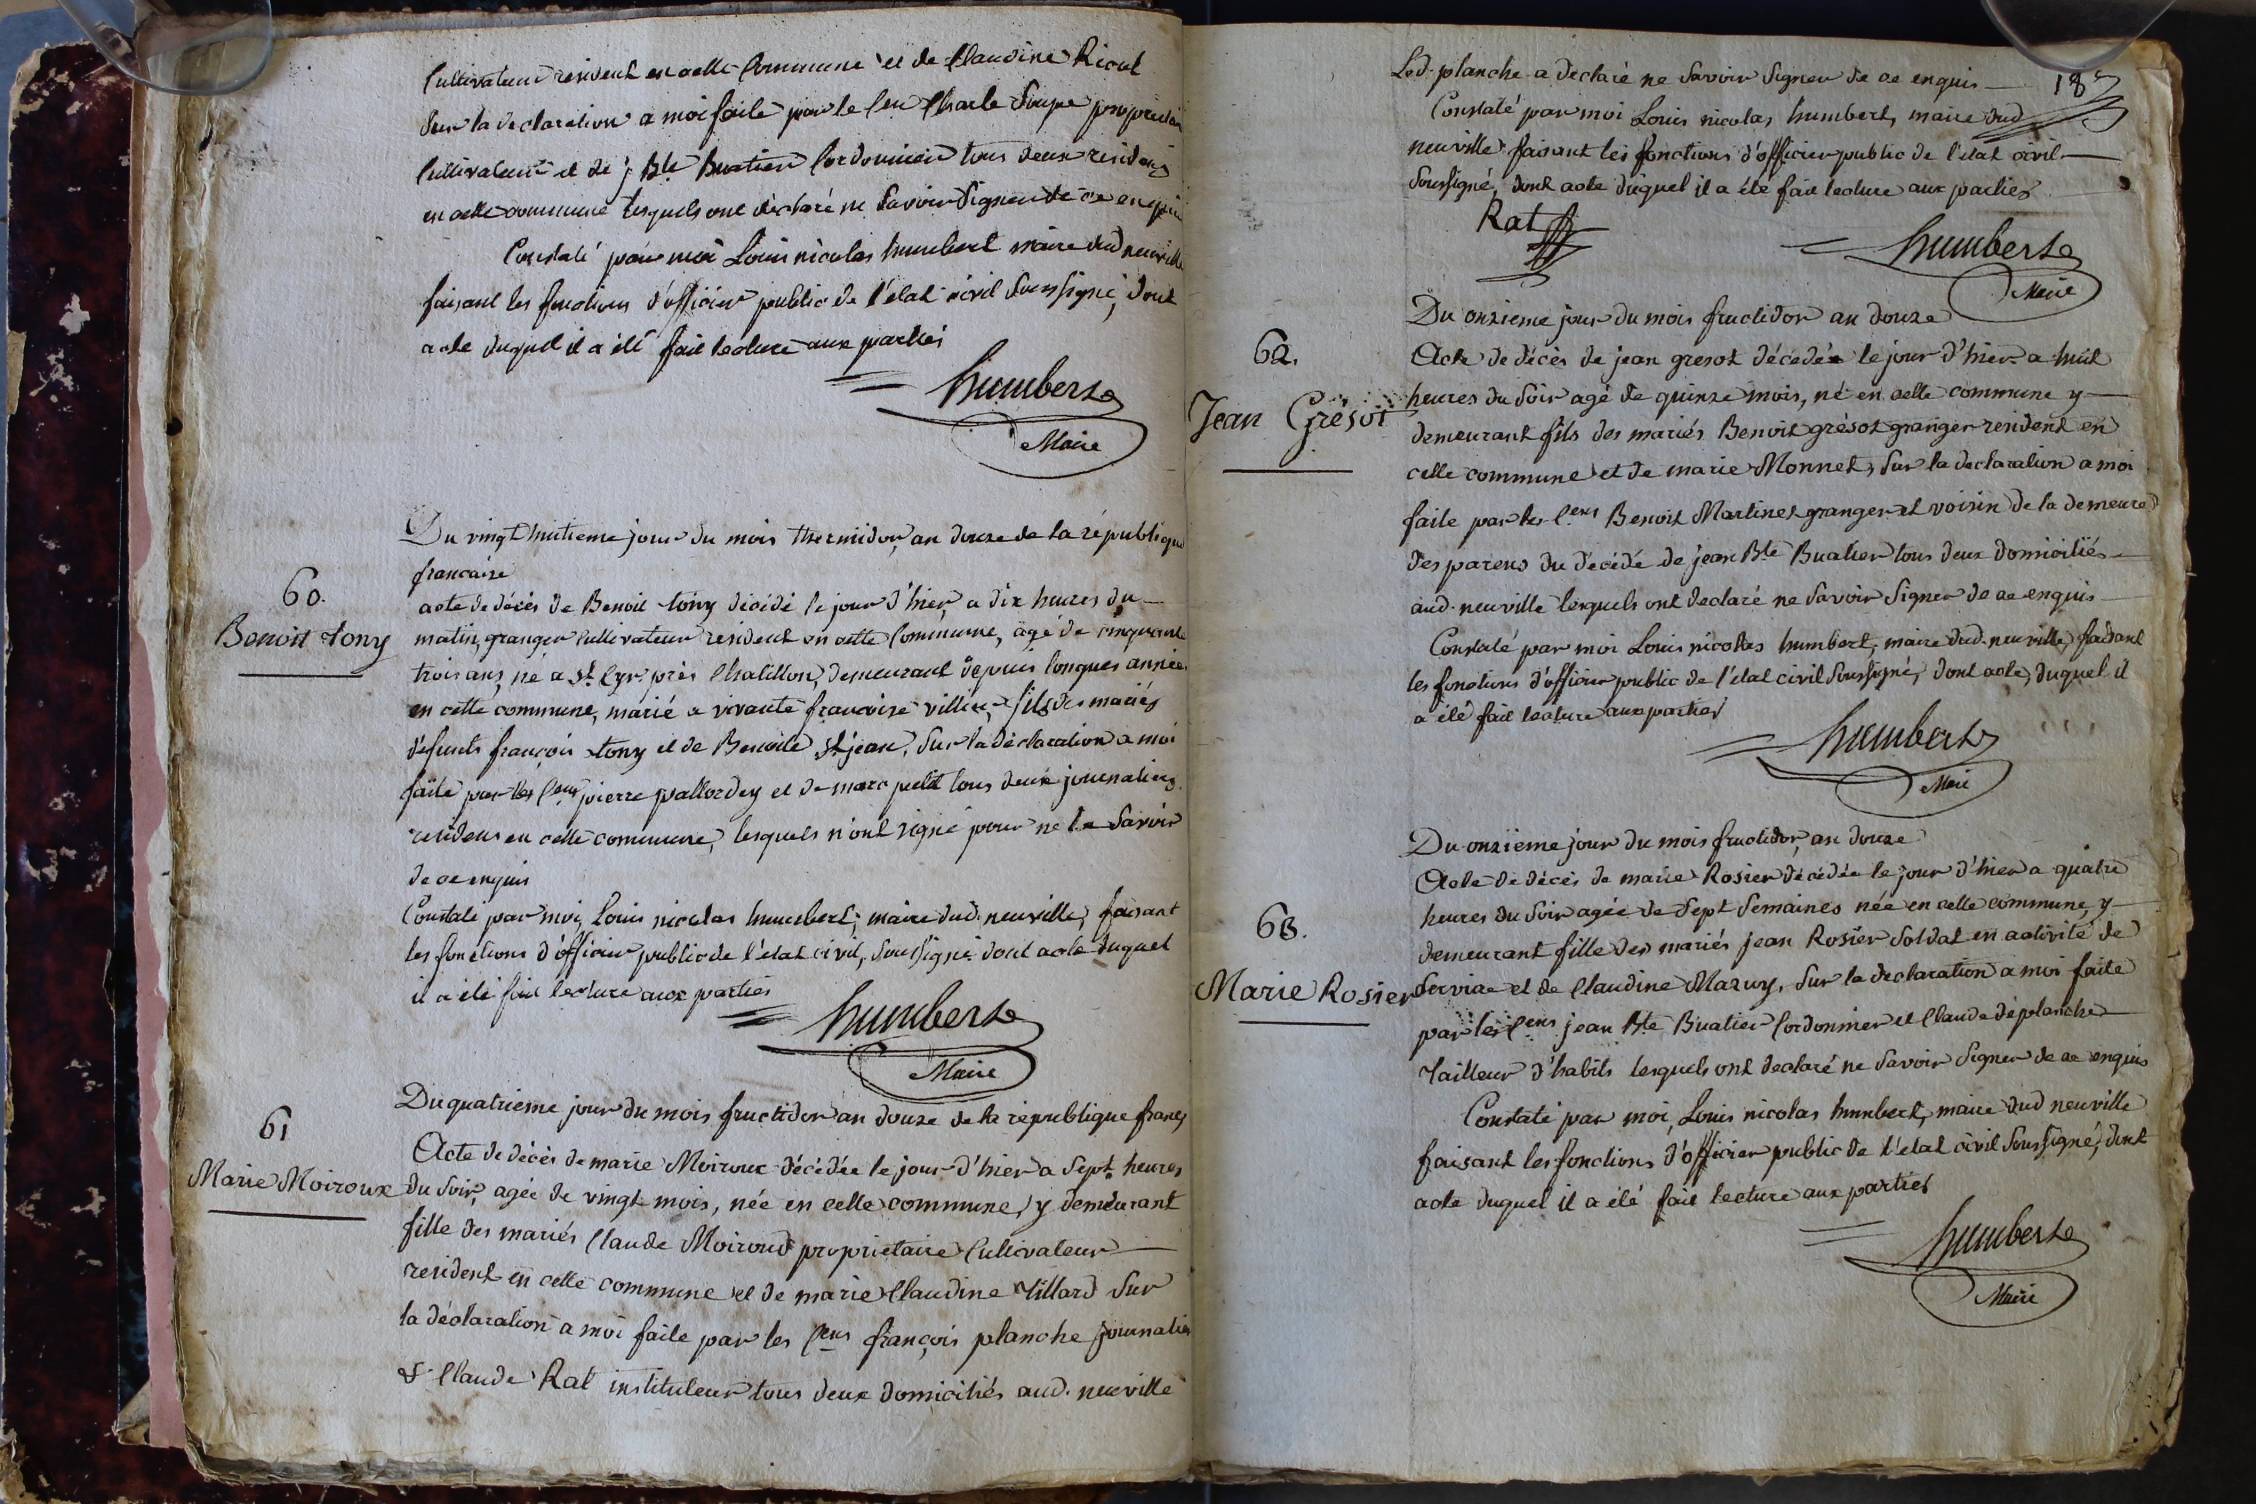 Cultivateur résident en cette Commune et de Claudine Ricol
Sur la déclaration a moi faite par le Cen Charle Soupe propriétai
Cultivateur et de j. Bte Buatier Cordonnier tous deux residens
en cette commune lesquels ont déclaré ne Savoir Signer de ce enquis
Constaté par moi Louis nicolas humbert maire dud neuville
faisant les fonctions d'officier public de l'état civil Soussigné, dont
acte duquel il a été fait lecture aux parties
humbert
Maire
Du vingt huitieme jour du mois thermidor, an douze de la républiqu
francaise
60.
Benoit tony
acte de décès de Benoit tony décédé le jour d'hier, a dix heures du
matin, granger Cultivateur résident en cette Commune, agé de cinquante
trois ans, né a St Cyr près Chatillon, demeurant depuis longues années
en cette commune, marié a vivante francoise villier, fils des mariés
défunts françois tony et de Benoite St jean, Sur la déclaration a moi
faite par les Cens pierre pallordey et de marc petit tous deux journaliers
residens en cette commune, lesquels n'ont signé pour ne le Savoir
de ce enquis
Constaté par moi, Louis nicolas humbert, maire dud. neuville, faisant
les fonctions d'officier public de l'état civil, Soussigné dont acte duquel
il a été fait lecture aux parties
humbert
Maire
Du quatrieme jour du mois fructidor an douze de la république frança
61
Marie Moiroux
Acte de décès de marie Moiroux décédée le jour d'hier a Sept heures
du Soir, agée de vingt mois, née en cette commune, y demeurant
fille des mariés Claude Moiroud propriétaire Cultivateur
résident en cette commune et de marie Claudine Tillard Sur
la déclaration a moi faite par les Cens françois planche journalie
& Claude Rat instituteur tous deux domiciliés aud. neuville
Led. planche a déclaré ne Savoir Signer de ce enquis
18
Constaté par moi Louis nicolas humbert, maire dud
neuville faisant les fonctions d'officier public de l'état civil
Soussigné, dont acte duquel il a été fait lecture aux parties
Rat
humbert
Maire
Du onzieme jour du mois fructidor an douze
62.
Jean Grésot
Acte de décès de jean gresot décédé le jour d'hier a huit
heures du Soir agé de quinze mois, né en cette commune y
demeurant fils des mariés Benoit grésot granger resident en
cette commune et de marie Monnet, Sur la declaration a moi
faite par les Cens Benoit Martinet granger et voisin de la demeure
des parens du décédé de jean Bte Buatier tous deux domiciliés
aud. neuville lesquels ont declaré ne Savoir Signer de ce enquis
Constaté par moi Louis nicolas humbert, maire dud. neuville, faisant
les fonctions d'officier public de l'état civil Soussigné, dont acte, duquel il
a été fait lecture aux parties
humbert
Maire
Du onzieme jour du mois fructidor, an douze
63.
Marie Rosier
Acte de décès de marie Rosier décédée le jour d'hier a quatre
heures du Soir agée de Sept Semaines née en cette commune, y
demeurant fille des mariés jean Rosier Soldat en activité de
Service et de Claudine Mazuy, Sur la declaration a moi faite
par les Cens jean Bte Buatier Cordonnier et Claude déplanche
Tailleur d'habits lesquels ont declaré ne Savoir Signer de ce enquis
Constaté par moi, Louis nicolas humbert, maire dud neuville
faisant les fonctions d'officier public de l'état civil Soussigné, dont
acte duquel il a été fait lecture aux parties
humbert
Maire